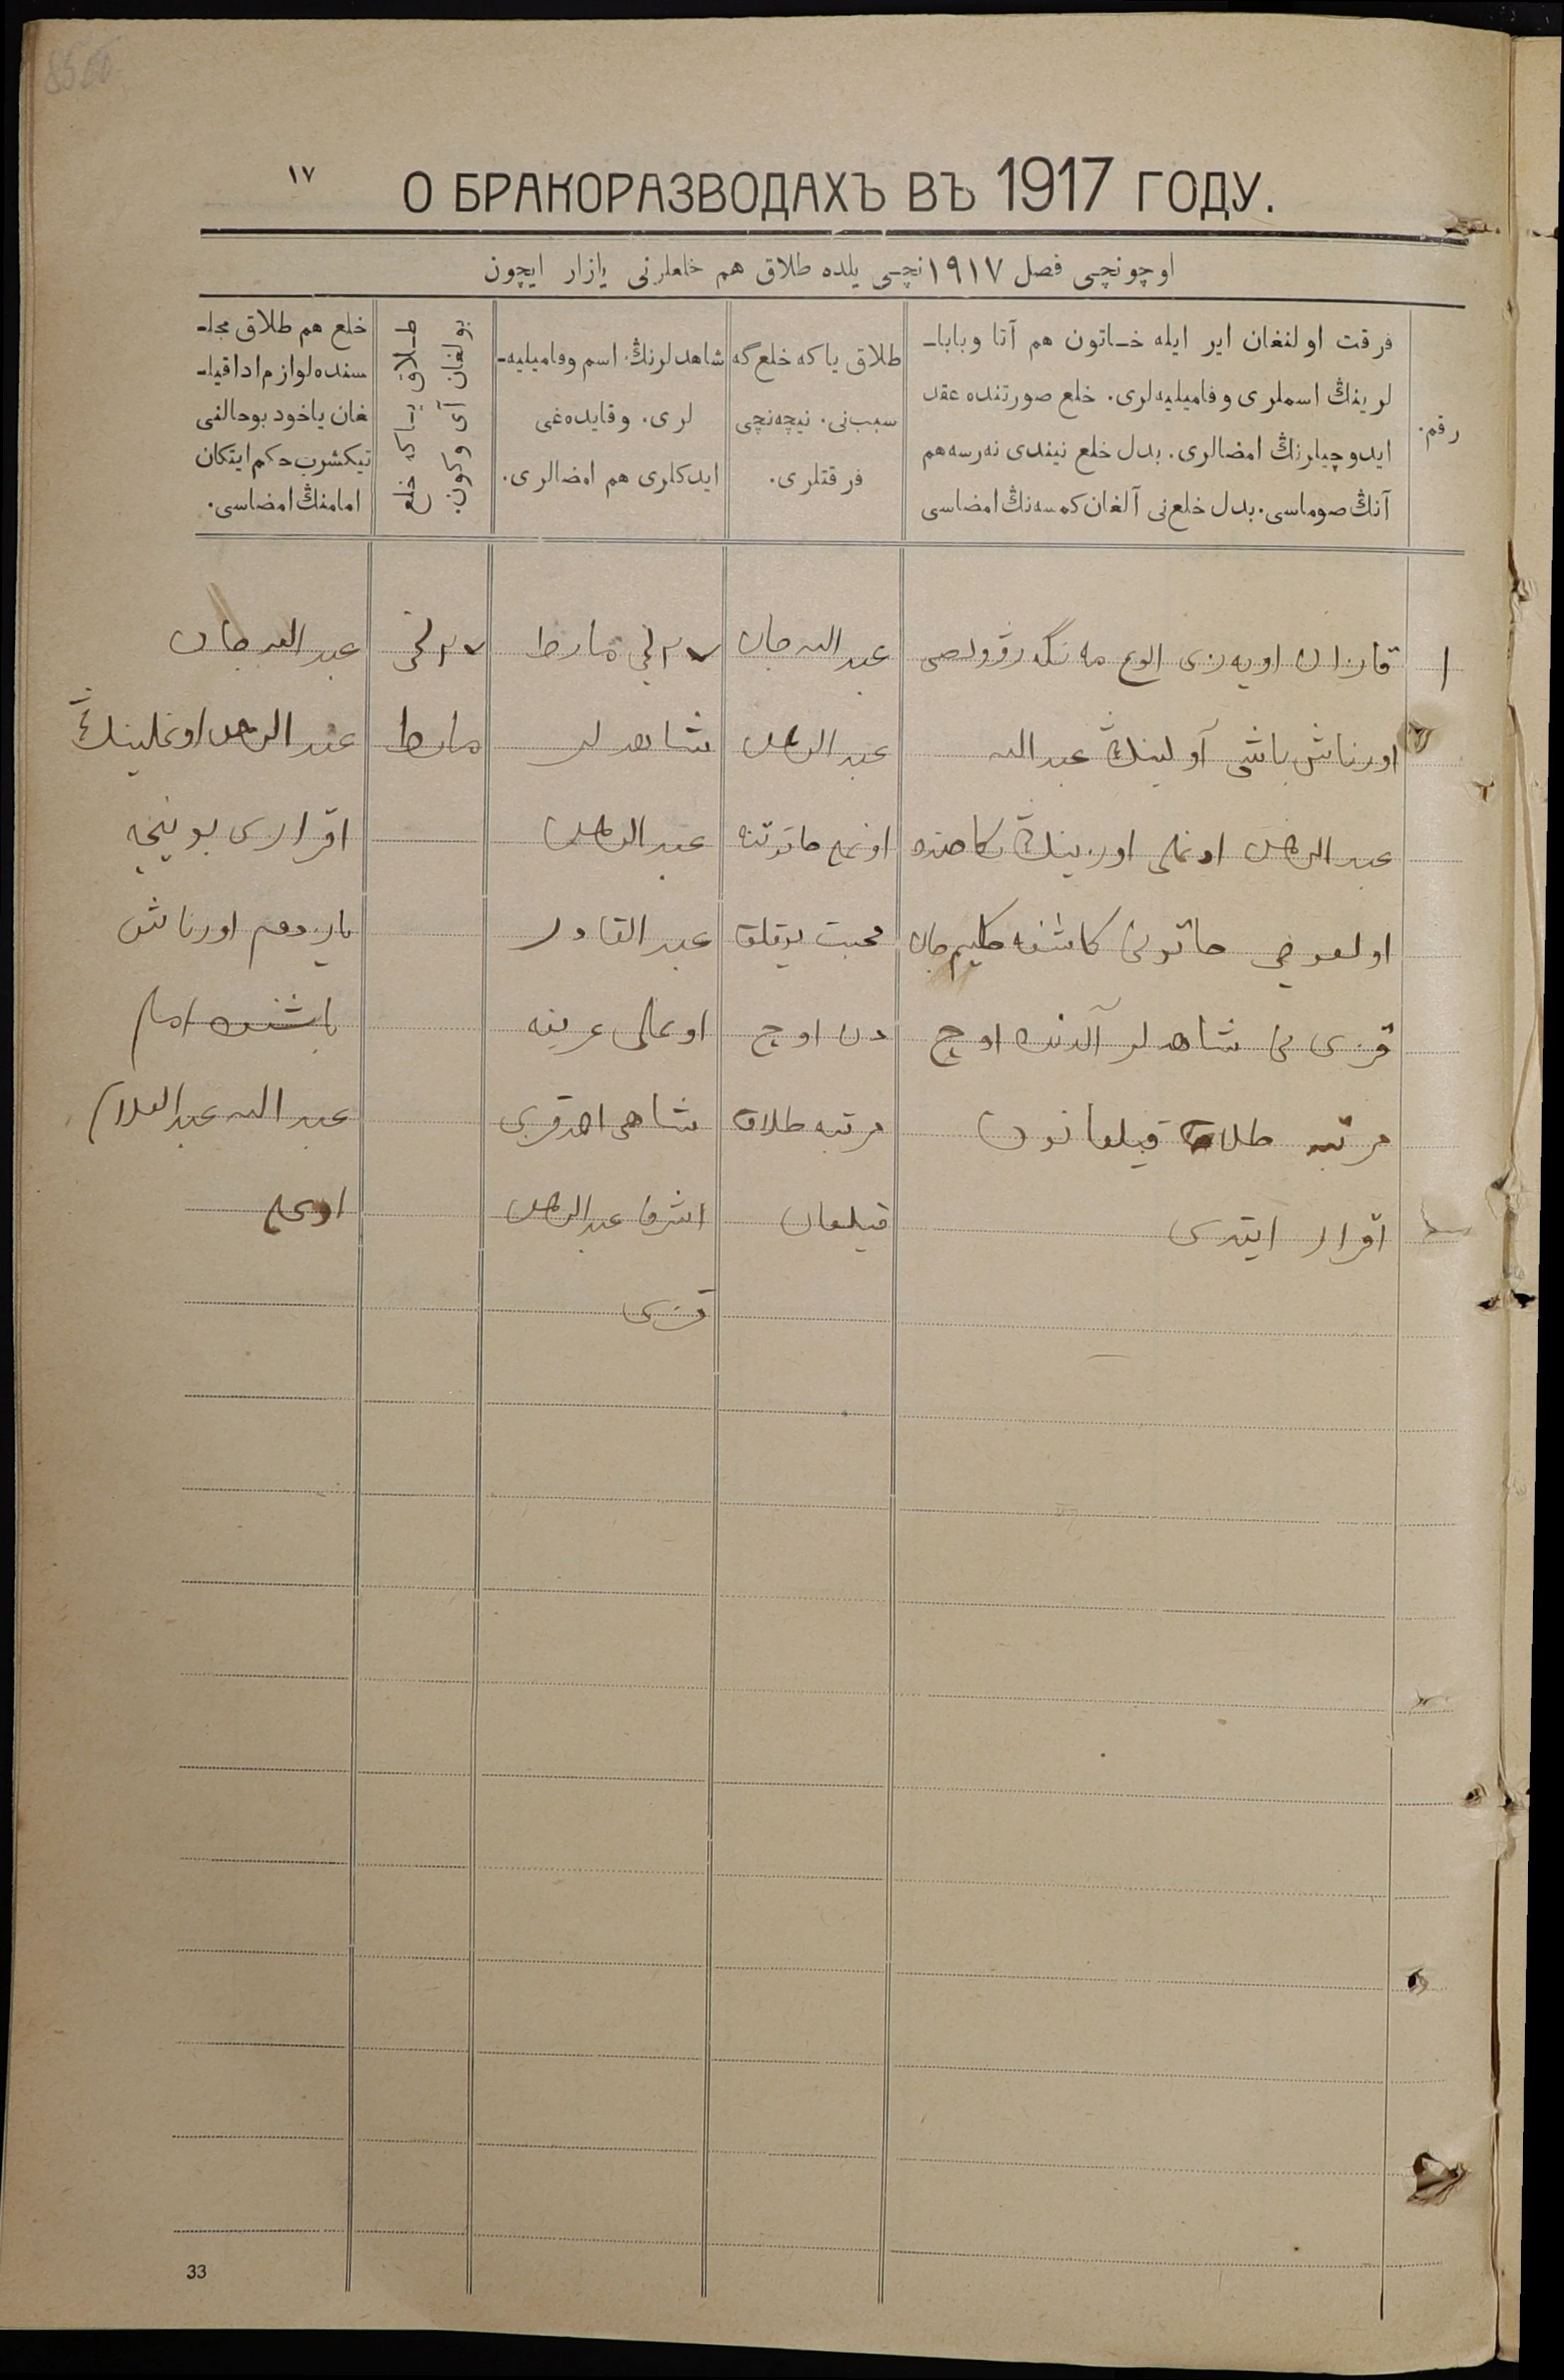 ١٧
О БРАКОРАЗВОДАХЪ ВЪ 1917 ГОДУ.
اوچونچی فصل ١٩١٧نچی یلده طلاق هم خلعلرنی یازار ایچون
رقم.
فرقت اولنغان ایر ایله خاتون هم آتا وبابا-
لرینڭ اسملری وفامیلیه‌لری. خلع صورتنده عقد
ایدوچیلرنڭ امضالری. بدل خلع نیندی نه‌رسه هم
آنڭ صوماسی. بدل خلع‌نی آلغان کمسه‌نڭ امضاسی
طلاق یاکه خلع‌گه
سبب‌نی. نیچه‌نچی
فرقتلری.
شاهدلرنڭ اسم وفامیلیه-
لری. وقایده‌غی
ایدکلری هم امضالری.
طلاق یاکه خلع
بولغان آی وکون.
خلع هم طلاق مجل-
سنده لوازم ادا قیل-
غان یاخود بوحالنی
تیکشرب حکم ایتکان
امامنڭ امضاسی.
١
قازان اویه‌زی الوع
اورناش باشی آولینڭ عبدالله
عبدالرحمن اوغلی اوزینڭ
خاتونی کاشفه حکیم جان
قزی نی شاهدلر آلدنده اوچ
مرتبه طلاق قیلغانون
اقرار ایتدی
عبدالله جان
عبدالرحمن
اوغلی خاتوننه
محبت یوقلق
دن اوچ
مرتبه طلاق
قیلغان
٢٧نچی مارط
شاهدلر
عبدالرحمن
عبدالقادر
اوغلی عریفه
شاهی احمد قزی
اشرفا عبدالرحمن
قزی
٢٧نچی
مارط
عبدالله جان
عبدالرحمن اوغلینڭ
اقراری بوینچه
یازدوم اورناش
باشنده امام
عبدالله عبدالعلام
اوغلی
33